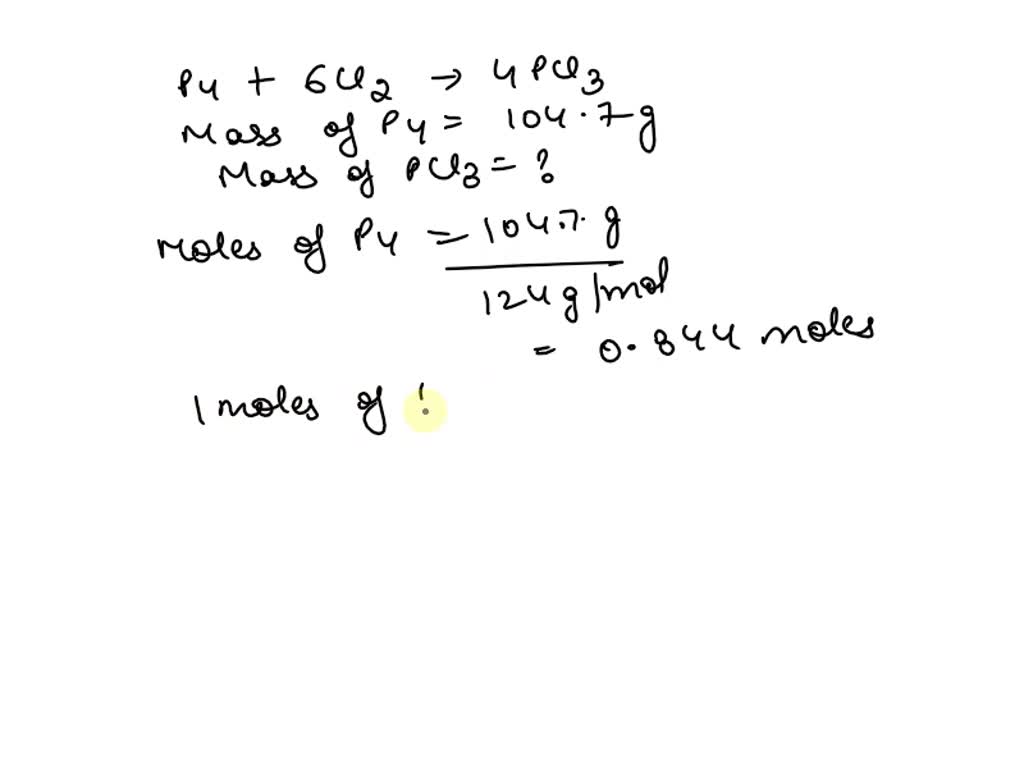 P4 + 6Cl2 → 4PCl3
Mass of P4 = 104.7g
Mass of PCl3 = ?
Moles of P4 = 104.7 g
124 g/mol
= 0.844 moles
1 moles of